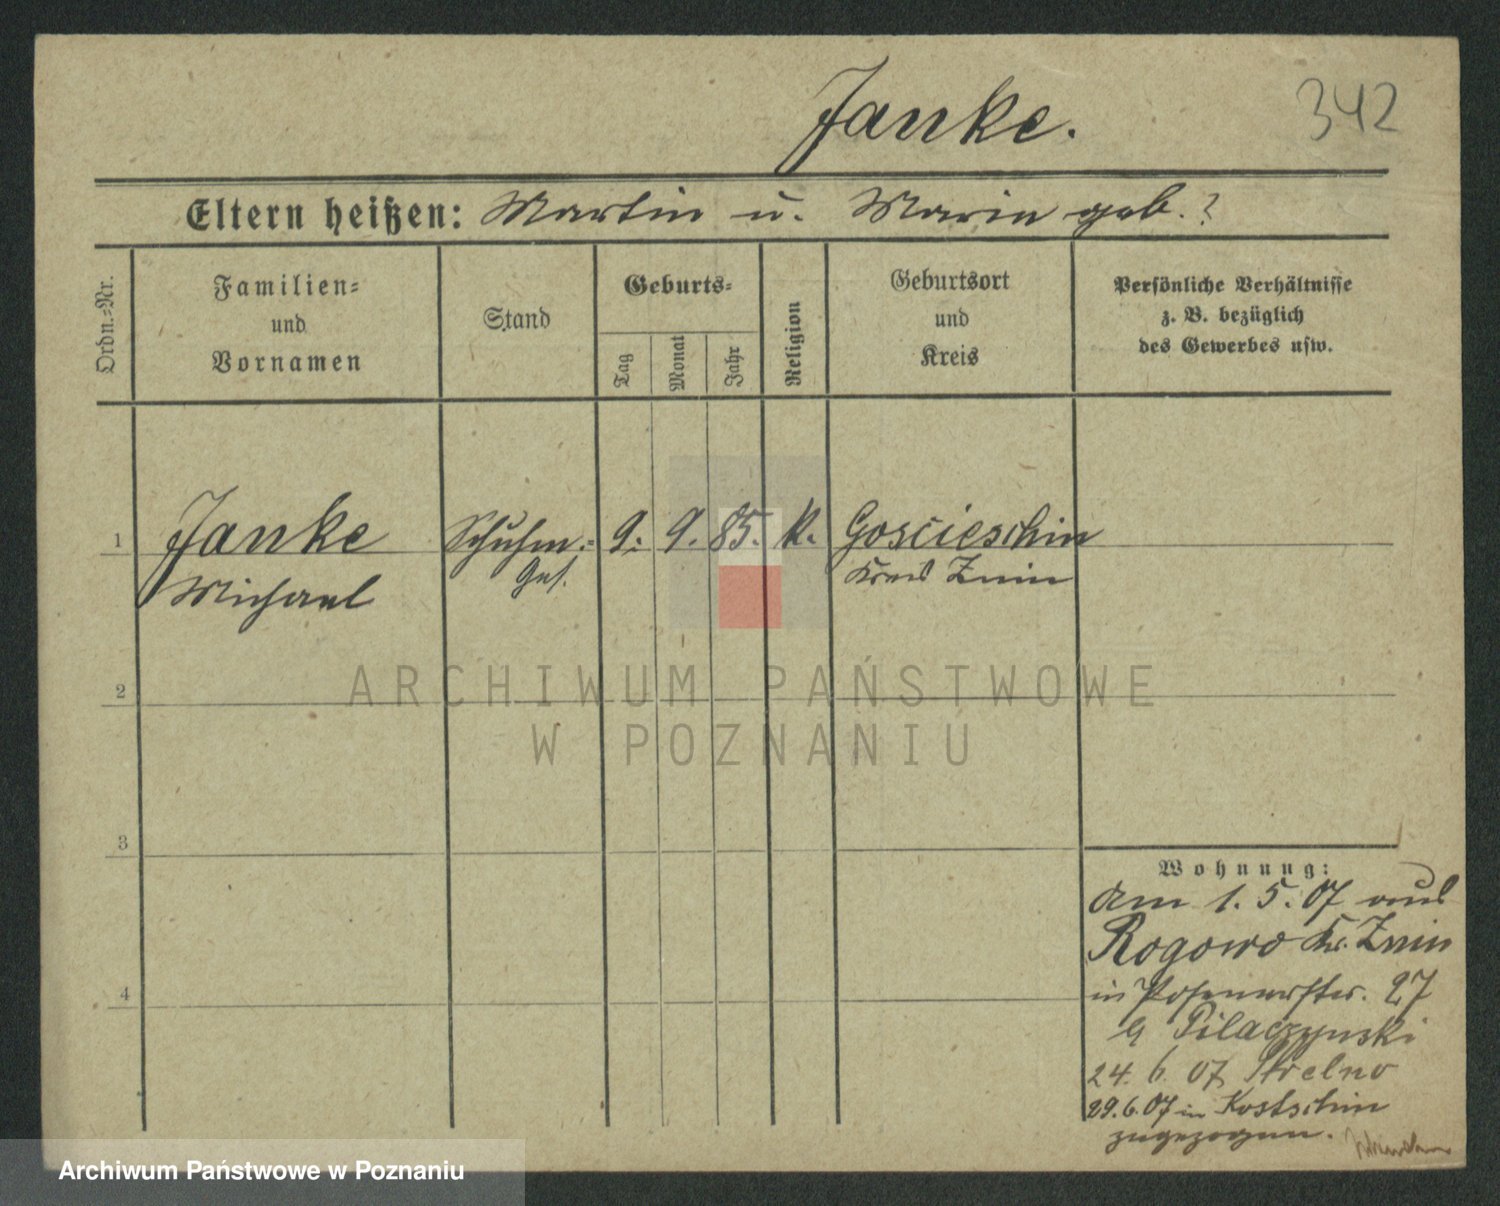 Janke.
342
Eltern heißen: Martin u. Marin geb. ?
Ordn.=Nr.
Familien=
und
Vornamen
Stand
Geburts=
Tag
Monat
Jahr
Religion
Geburtsort
und
Kreis
Persönliche Verhältnisse
z. B. bezüglich
des Gewerbes usw.
1
Janke
Michael
Schuhm.=
Ges.
9.
9.
85.
k.
Gościeschin
Kreis Znin
2
3
4
Wohnung:
Am 1. 5. 07 aus
Rogowo Kr. Znin
in Posenerstr. 27
b Pilaczynski
24. 6. 07 Strelno
29.6.07 in Kostschin
zugezogen.
ARCHIWUM PAŃSTWOWE
W POZNANIU
Archiwum Państwowe w Poznaniu